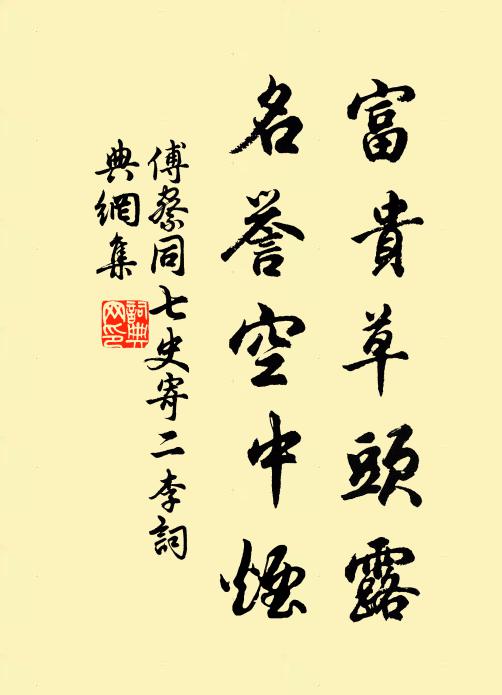 富貴草頭露
名譽空中煙
傅察同七史寄二李詞
典網集
詞典網印